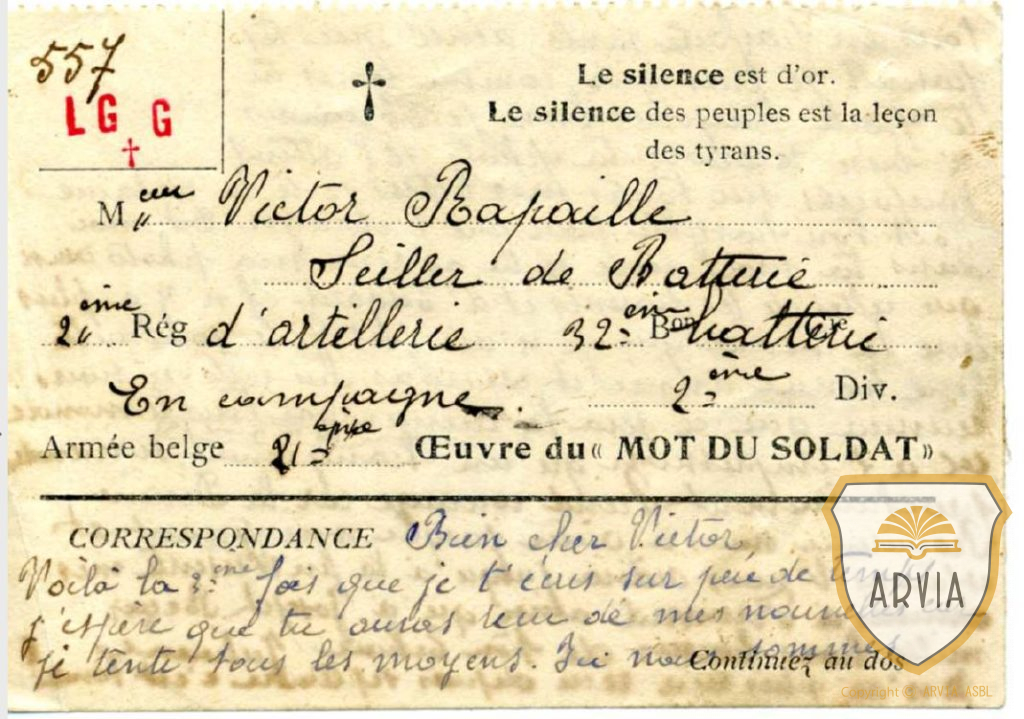 557
LG G
Le silence est d'or.
Le silence des peuples est la leçon
des tyrans.
M Victor Rapaille
Seiller de Batterie
2 ème Rég d'artillerie 32 Bon batterie
En campagne. 2 ème Div.
Armée belge Œuvre du « MOT DU SOLDAT »
CORRESPONDANCE Bien cher Victor,
Voilà la 3 ème fois que je t'écris sur peu de
j'espère que tu auras reçu de mes
je tente tous les moyens. Ici nous sommes
Continuez au dos
ARVIA
Copyright © ARVIA ASBL